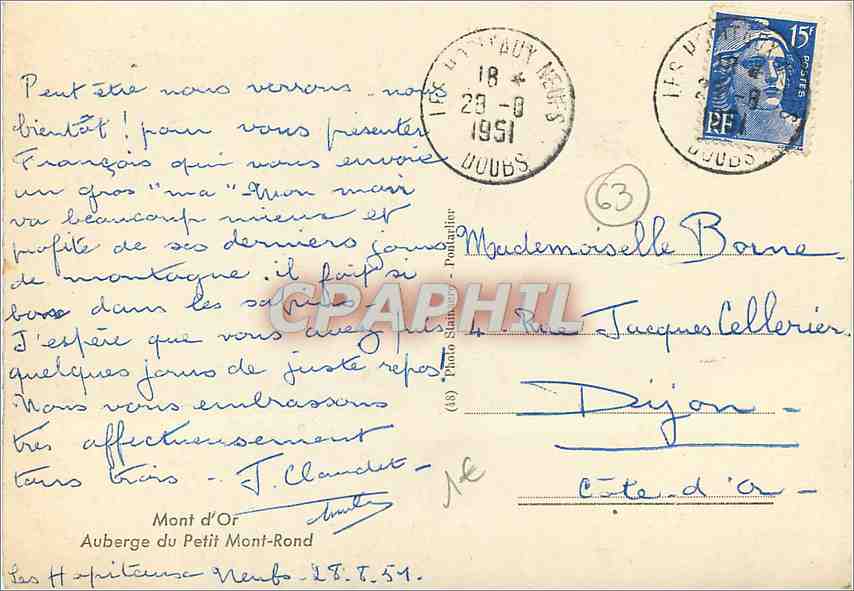 Peut être nous verrons-nous
bientôt! pour vous présenter
François qui vous envoie
un gros "ma" - Mon mari
va beaucoup mieux et
profite de ses derniers jours
de montagne. il fait si
bon dans les sapins -
J'espère que vous avez pris
quelques jours de juste repos!
Nous vous embrassons
très affectueusement
tous trois - J. Claudet -
Mont d'Or
Auberge du Petit Mont-Rond
Les Hopitaux Neufs - 28.8.51.
(48) Photo Stainacre - Pontarlier
LES HOPITAUX NEUFS
18
29-8
1951
DOUBS
LES HOPITAUX NEUFS
DOUBS
15F
POSTES
RF
63
Mademoiselle Borne -
4 Rue Jacques Cellerier
Dijon -
Côte-d'Or -
1€
CPAPHIL